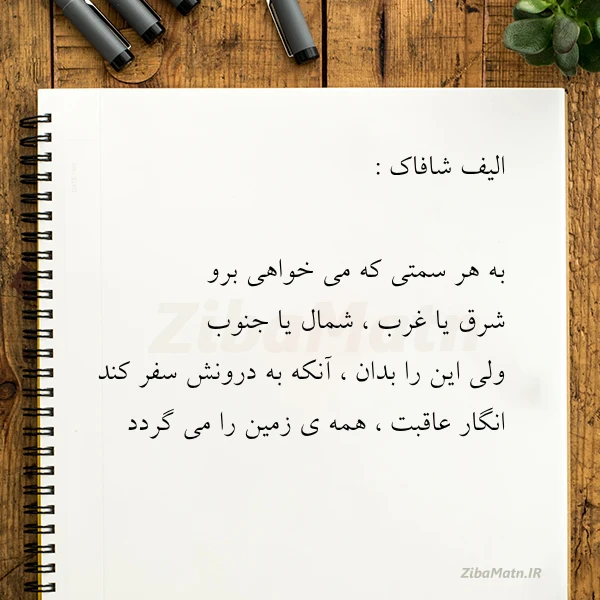 الیف شافاک :
به هر سمتی که می خواهی برو
شرق یا غرب ، شمال یا جنوب
ولی این را بدان ، آنکه به درونش سفر کند
انگار عاقبت ، همه ی زمین را می گردد
ZibaMatn
ZibaMatn.IR